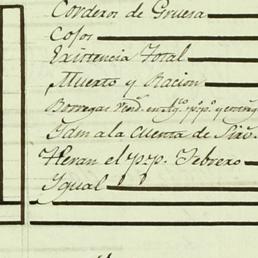 Corderos de Gruesa
Cojos
Existencia Total
Muerto y Racion
Borregas Vend. en
Idm a la Cuenta de
Heran el p.p. Febrero
Ygual